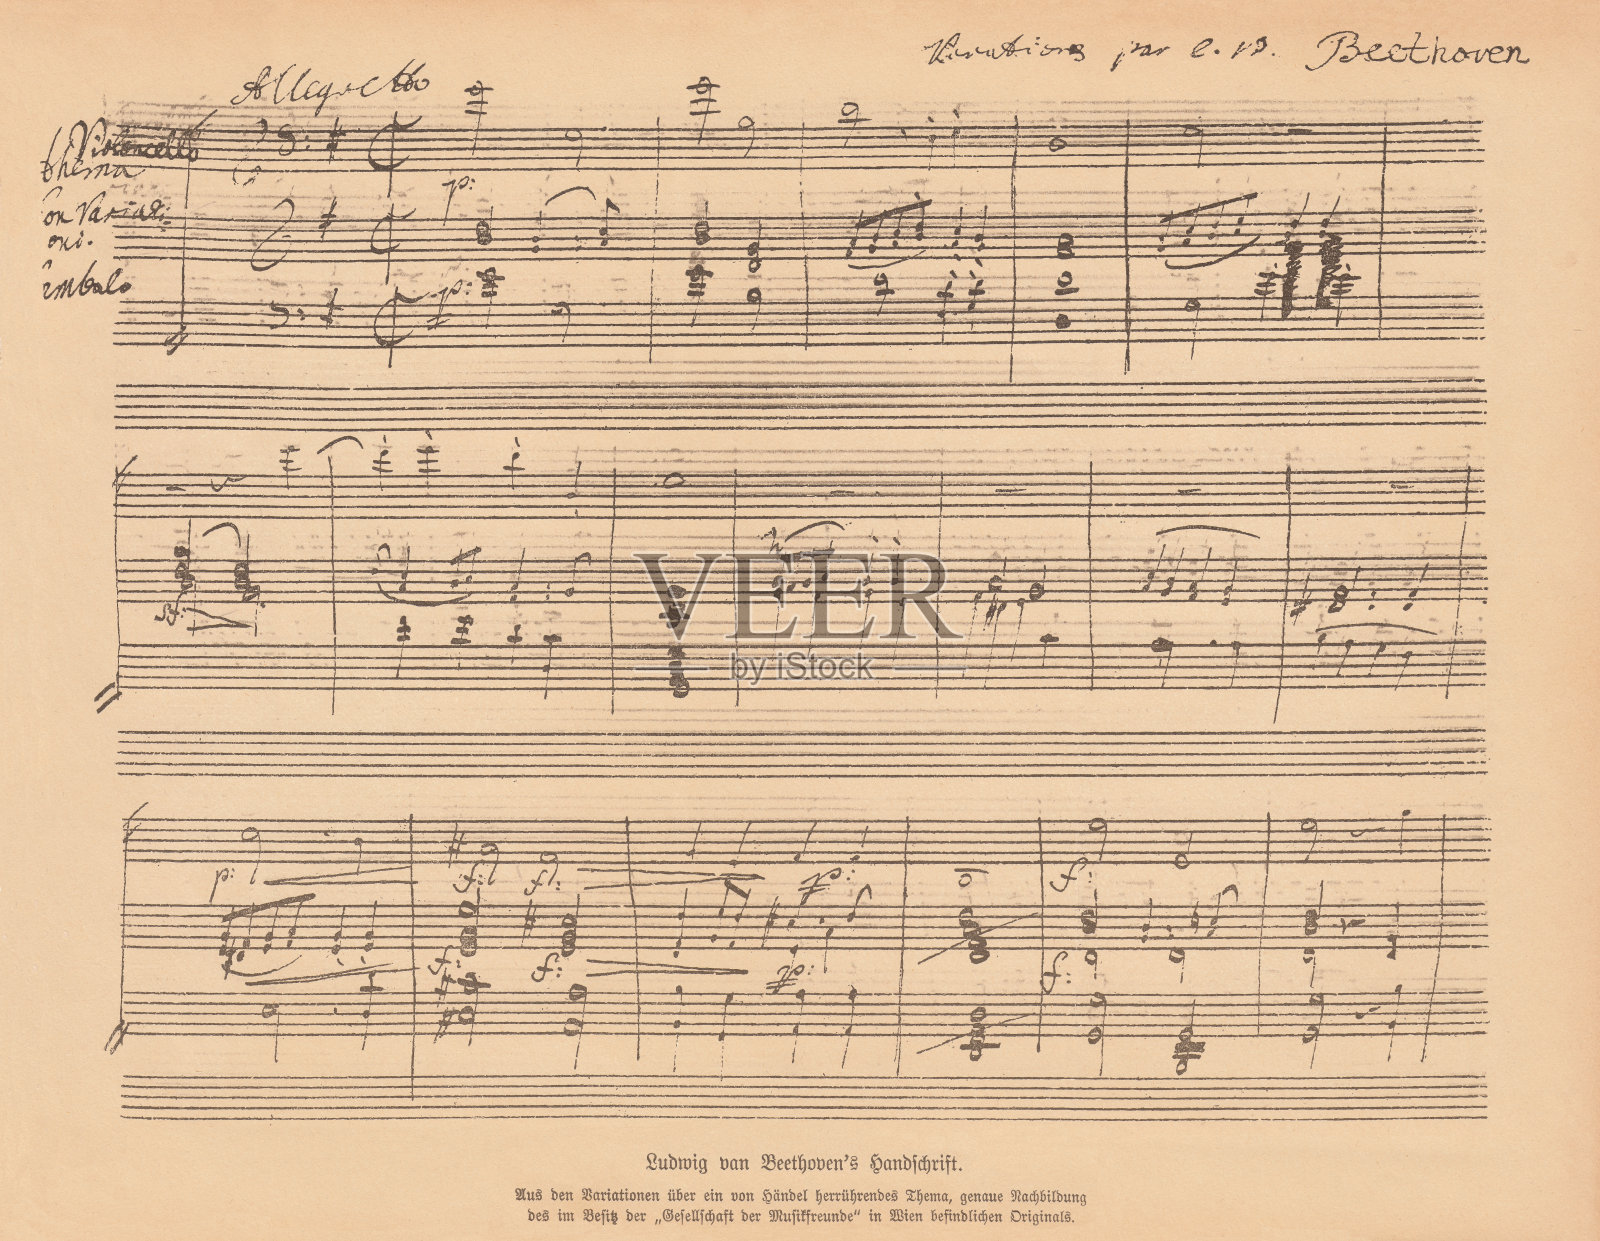 Variations par L. v. Beethoven
Allegretto
Violoncello
thema
con Variazi
oni.
Cimbalo
p:
p:
sf:
p:
f: f:
p:
f:
f: f:
p:
f:
VEER
by iStock
Ludwig van Beethoven's Handschrift.
Aus den Variationen über ein von Händel herrührendes Thema, genaue Nachbildung
des im Besitz der „Gesellschaft der Musikfreunde“ in Wien befindlichen Originals.